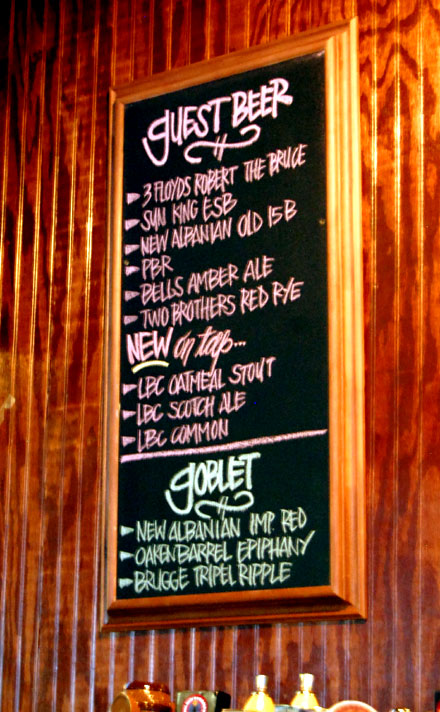 GUEST BEER
3 FLOYDS ROBERT THE BRUCE
SUN KING ESB
NEW ALBANIAN OLD 15 B
PBR
BELLS AMBER ALE
TWO BROTHERS RED RYE
NEW on tap...
LBC OATMEAL STOUT
LBC SCOTCH ALE
LBC COMMON
GOBLET
NEW ALBANIAN IMP. RED
OAKEN BARREL EPIPHANY
BRUGGE TRIPEL RIPPLE